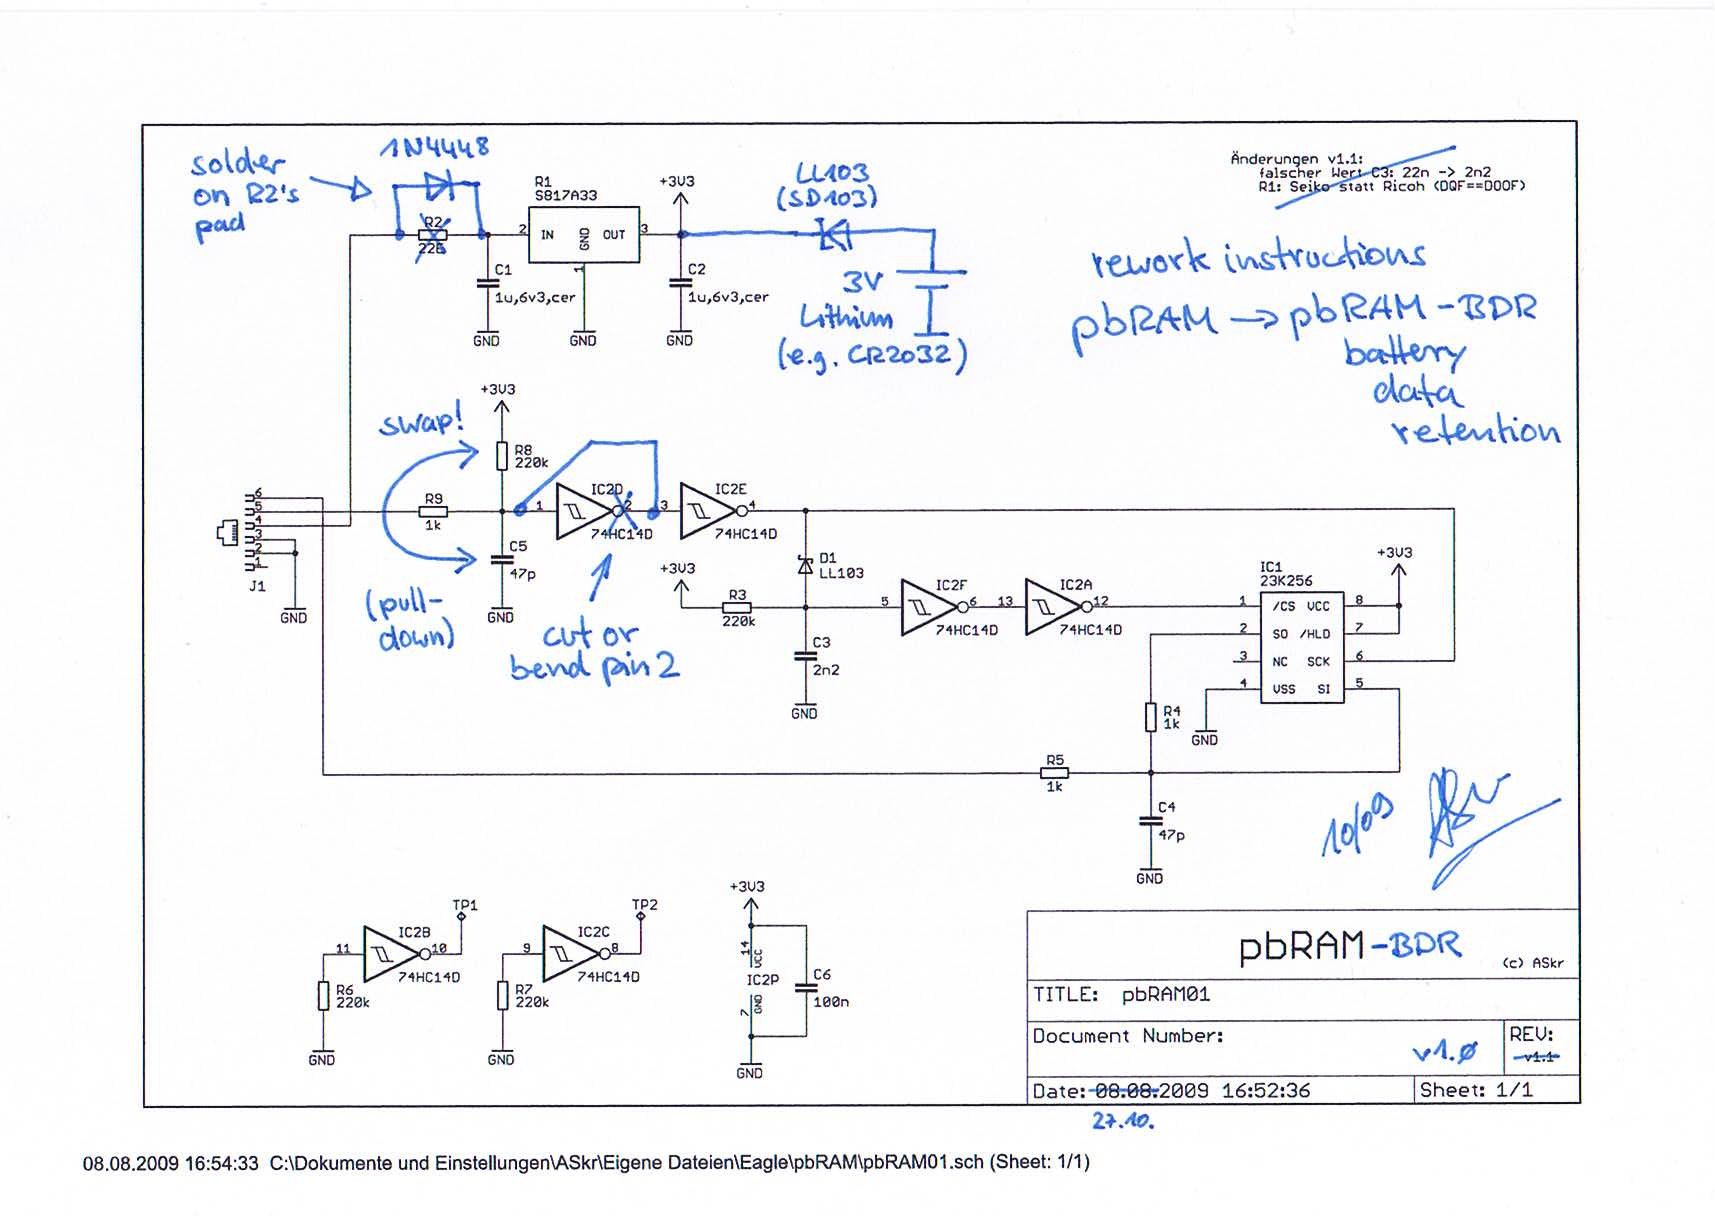 solder
on R2's
pad
1N4448
R2
22E
R1
S817A33
2
IN
GND
OUT
3
1
+3V3
C1
1u,6v3,cer
GND
GND
C2
1u,6v3,cer
GND
LL103
(SD103)
3V
Lithium
(e.g. CR2032)
Änderungen v1.1:
falscher Wert C3: 22n -> 2n2
R1: Seiko statt Ricoh (DQF==DOOF)
rework instructions
pbRAM → pbRAM-BDR
battery
data
retention
swap!
+3V3
R8
220k
6
5
4
3
2
1
J1
GND
R9
1k
C5
47p
GND
(pull-
down)
1
IC2D
2
74HC14D
cut or
bend pin 2
3
IC2E
4
74HC14D
D1
LL103
+3V3
R3
220k
C3
2n2
GND
5
IC2F
6
74HC14D
13
IC2A
12
74HC14D
IC1
23K256
+3V3
1 /CS VCC 8
2 SO /HLD 7
3 NC SCK 6
4 VSS SI 5
GND
R4
1k
R5
1k
C4
47p
GND
10/09
11
IC2B
10
TP1
74HC14D
R6
220k
GND
9
IC2C
8
TP2
74HC14D
R7
220k
GND
+3V3
14
VCC
IC2P
7
GND
C6
100n
GND
pbRAM-BDR
(c) ASkr
TITLE: pbRAM01
Document Number:
v1.0
REV:
v1.1
Date: 08.08.2009 16:52:36
Sheet: 1/1
27.10.
08.08.2009 16:54:33 C:\Dokumente und Einstellungen\ASkr\Eigene Dateien\Eagle\pbRAM\pbRAM01.sch (Sheet: 1/1)